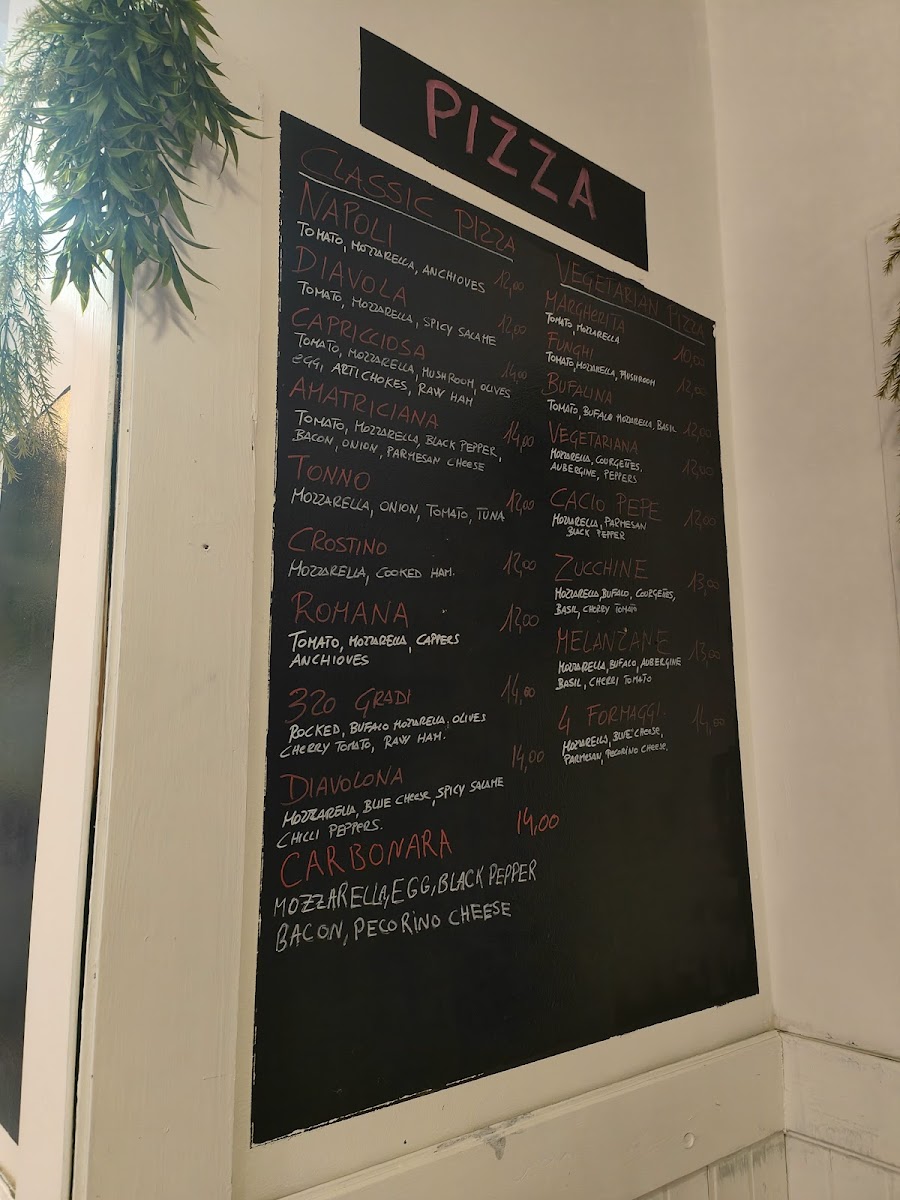 PIZZA
CLASSIC PIZZA
NAPOLI
TOMATO, MOZZARELLA, ANCHIOVES 12,00
DIAVOLA
TOMATO, MOZZARELLA, SPICY SALAME 12,00
CAPRICCIOSA
TOMATO, MOZZARELLA, MUSHROOM, OLIVES 14,00
EGG, ARTICHOKES, RAW HAM
AMATRICIANA 14,00
TOMATO, MOZZARELLA, BLACK PEPPER,
BACON, ONION, PARMESAN CHEESE
TONNO 12,00
MOZZARELLA, ONION, TOMATO, TUNA
CROSTINO 12,00
MOZZARELLA, COOKED HAM.
ROMANA 12,00
TOMATO, MOZZARELLA, CAPPERS
ANCHIOVES
320 GRADI 14,00
ROCKED, BUFALO MOZZARELLA, OLIVES
CHERRY TOMATO, RAW HAM.
DIAVOLONA 14,00
MOZZARELLA, BLUE CHEESE, SPICY SALAME
CHILLI PEPPERS.
CARBONARA 14,00
MOZZARELLA, EGG, BLACK PEPPER
BACON, PECORINO CHEESE
VEGETARIAN PIZZA
MARGHERITA
TOMATO, MOZZARELLA 10,00
FUNGHI
TOMATO, MOZZARELLA, MUSHROOM 12,00
BUFALINA
TOMATO, BUFALO MOZZARELLA, BASIL 12,00
VEGETARIANA
MOZZARELLA, COURGETTES, 12,00
AUBERGINE, PEPPERS
CACIO PEPE 12,00
MOZZARELLA, PARMESAN
BLACK PEPPER
ZUCCHINE 13,00
MOZZARELLA, BUFALO, COURGETTES,
BASIL, CHERRY TOMATO
MELANZANE 13,00
MOZZARELLA, BUFALO, AUBERGINE
BASIL, CHERRI TOMATO
4 FORMAGGI. 14,00
MOZZARELLA, BLUE CHEESE,
PARMESAN, PECORINO CHEESE,